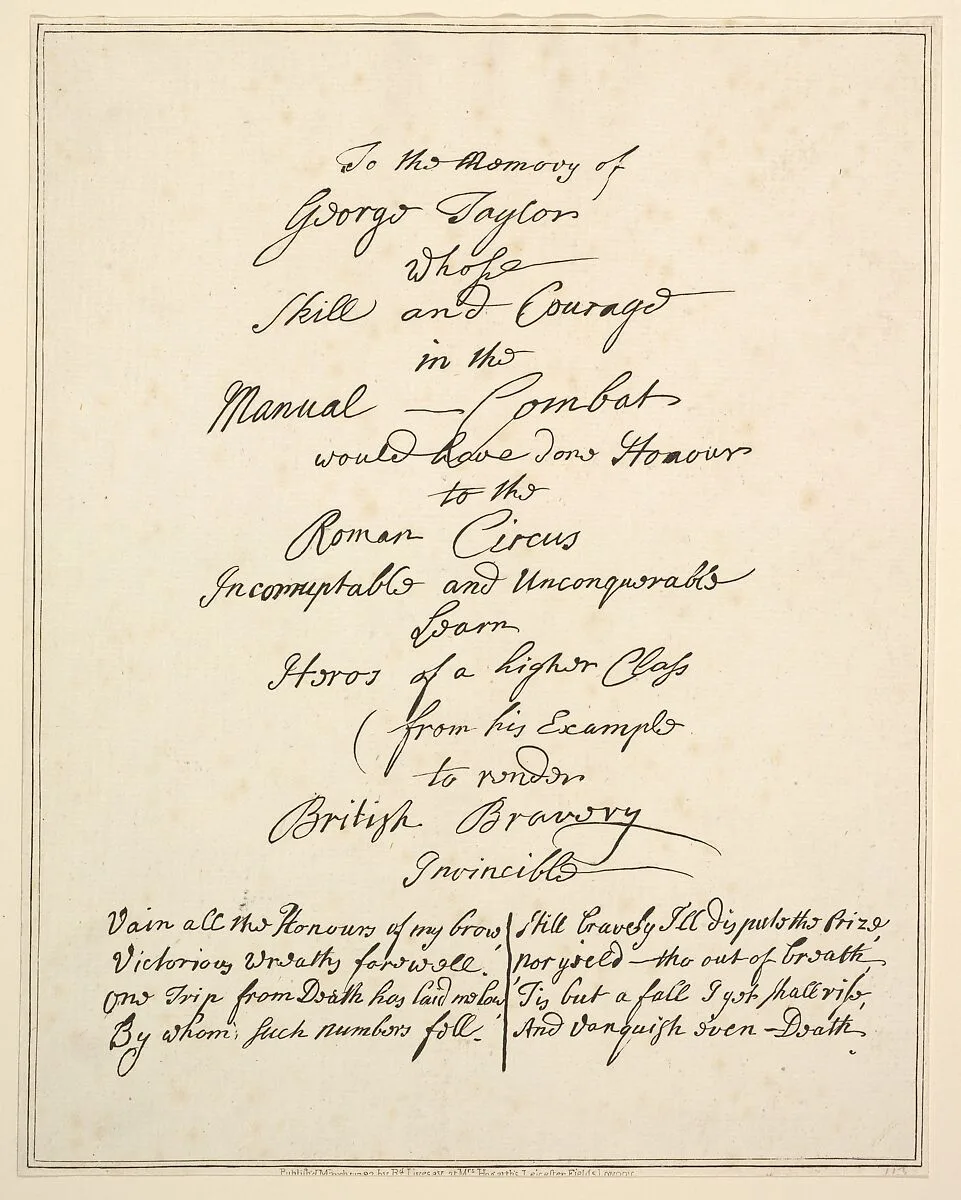 To the Memory of
George Taylor
whose
Skill and Courage
in the
Manual — Combat
would have done Honour
to the
Roman Circus
Incorruptable and Unconquerable
Learn
Heros of a higher Class
( from his Example
to render
British Bravery
Invincible
Vain all the Honours of my brow
Victorious Wreaths farewell.
One Trip from Death has laid me low
By whom; such numbers fell.
Still bravely I'll dispute the Prize
nor yield — tho out of breath
Tis but a fall I yet shall rise
And vanquish even — Death.
Publish'd March by Rd. Livesay at Mrs. Hogarth's Leicester Fields London
113